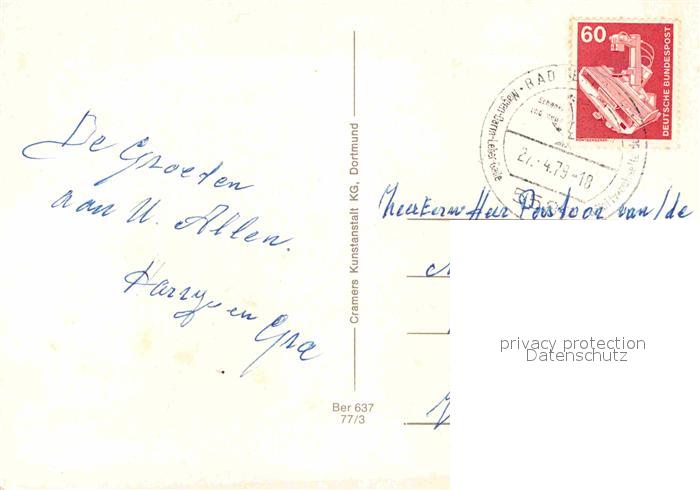 De Groeten
aan U. Allen.
Harrye en
Cramers Kunstanstalt KG, Dortmund
Ber 637
77/3
60
DEUTSCHE BUNDESPOST
BAD
27.-4.79-18
Heer Pastoor van/de
privacy protection
Datenschutz